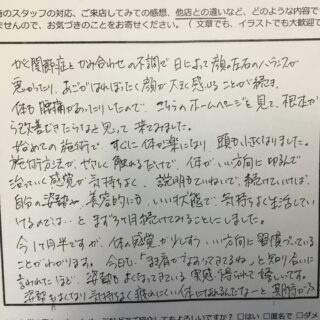 のスタッフの対応、ご来店してみての感想、他店との違いなど、どのような内容で
ませんので、お気づきのことをお寄せください。(文章でも、イラストでも大歓迎で
がく関節症とかみ合わせの不調で日によって顔の左右のバランスが
悪かったり、あごがはればったく顔が大きく感じることが続き、
体も腰痛があったりしたので、こちらのホームページを見て、根本から
改善できたらなと思って来てみました。
始めての施術で、すぐに体が楽になり、頭も小さくなりました。
施術方法が、やさしく触れるだけで、体がいい方向にゆるんで
治っていく感覚が気持ちよく、説明もていねいで、続けていけば、
自分の姿勢や美容的にもいい状態で、気持ちよく生活してい
けるのでは…とまず3ヶ月続けてみることにしました。
今1ヶ月半ですが、体の感覚がいい方向に習慣づいている
ことがわかります。今日も、「まだ肩がなおってきてるね」と知り合いに
言われたほど、姿勢もよくなってきている実感が得られて嬉しいです。
姿勢もよくなり気持ちよく疲れにくい体に
はい 匿名で ダメ